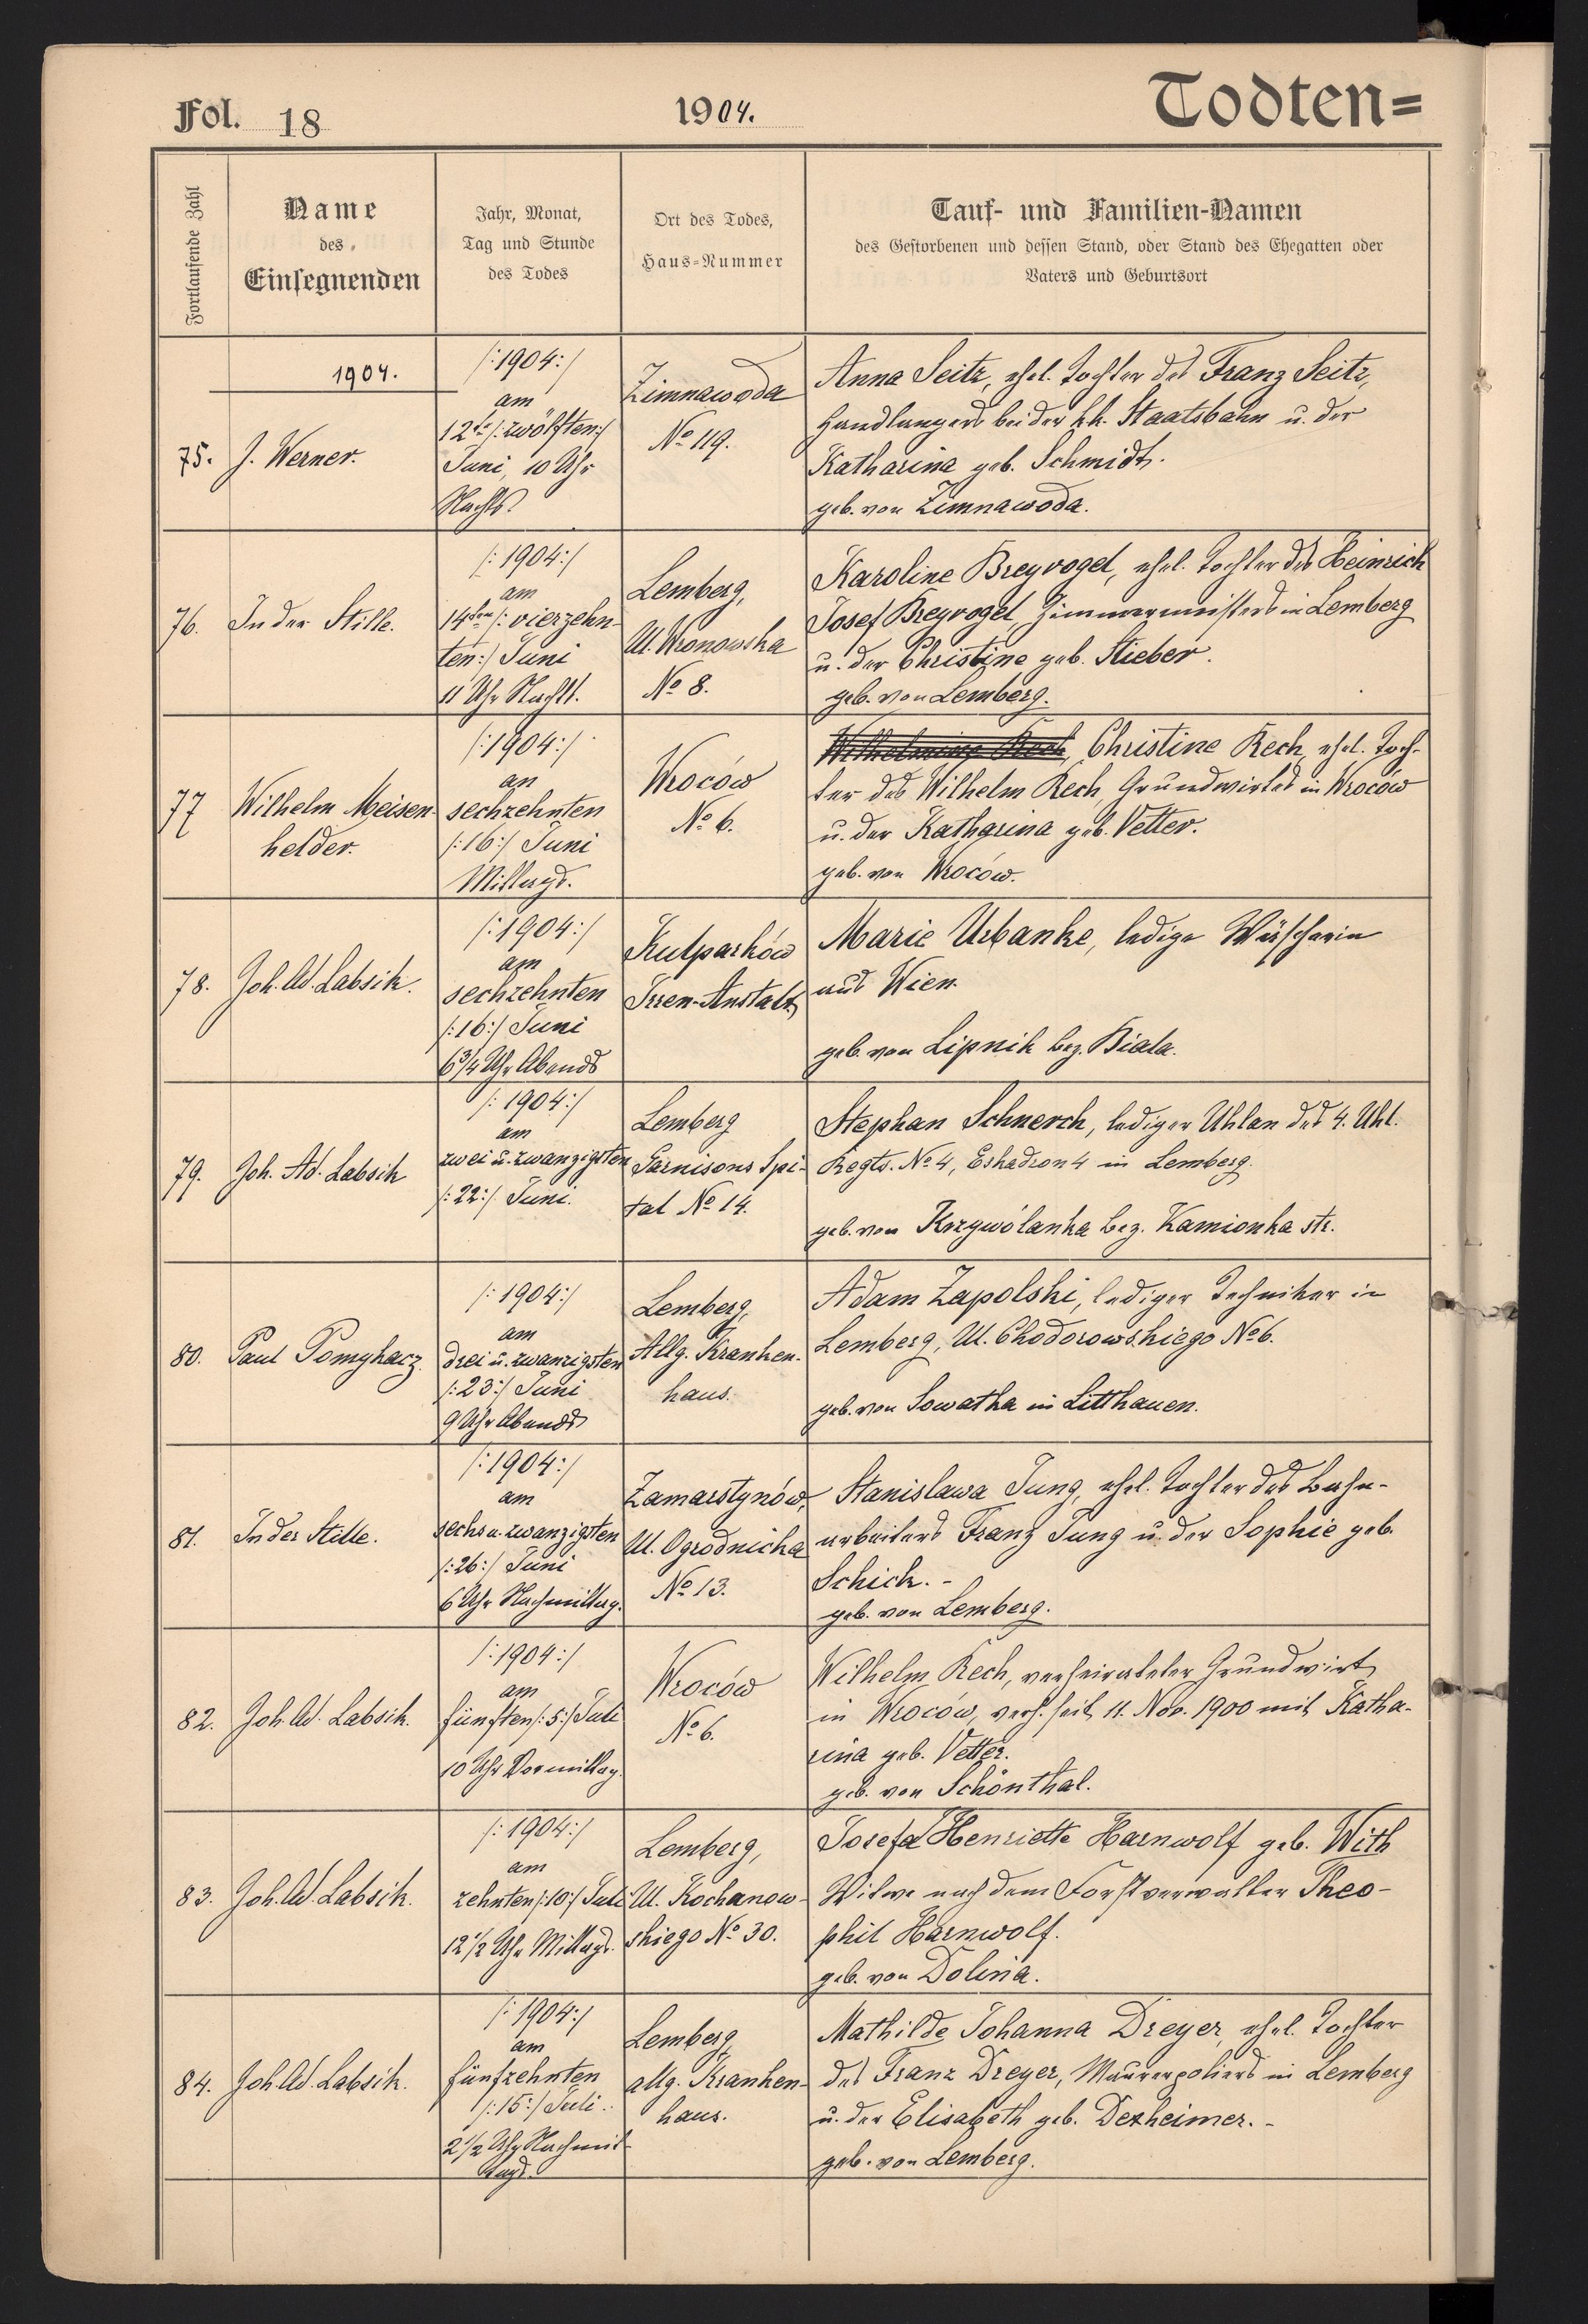 Fol. 18
1904.
Todten=
Fortlaufende Zahl
Name
des
Einsegnenden
Jahr, Monat,
Tag und Stunde
des Todes
Ort des Todes,
Haus-Nummer
Tauf- und Familien-Namen
des Gestorbenen und dessen Stand, oder Stand des Ehegatten oder
Vaters und Geburtsort
1904.
75.
J. Werner.
/:1904:/
am
12te /:zwölften:/
Juni, 10 Uhr
Nachts.
Zimnawoda
No 119.
Anna Seitz, ehel. Tochter des Franz Seitz,
Handlangers bei der kk. Staatsbahn u. der
Katharina geb. Schmidt.
geb. von Zimnawoda.
76.
In der Stille.
/:1904:/
am
14ten /: vierzehn-
ten:/ Juni
11 Uhr Nachts.
Lemberg,
Ul. Wronowska
No 8.
Karoline Breyvogel, ehel. Tochter des Heinrich
Josef Breyvogel, Zimmermeisters in Lemberg
u. der Christine geb. Stieber.
geb. von Lemberg.
77
Wilhelm Meisen-
helder.
/:1904:/
an
sechzehnten
/:16:/ Juni
Mittags.
Wroców
No 6.
Wilhelmine Rech, Christine Rech, ehel. Toch-
ter des Wilhelm Rech, Grundwirtes in Wroców
u. der Katharina geb. Vetter.
geb. von Wroców.
78.
Joh. Ad. Labsik.
/:1904:/
am
sechzehnten
/:16:/ Juni
6 3/4 Uhr Abends
Kulparków
Irren-Anstalt
Marie Urbanke, ledige Wäscherin
aus Wien.
geb. von Lipnik bez. Biala.
79.
Joh. Ad. Labsik
/:1904:/
am
zwei u. zwanzigsten
/:22:/ Juni.
Lemberg
Garnisons Spi-
tal No 14.
Stephan Schnerch, lediger Uhlan des 4. Uhl.
Regts. No 4, Eskadron 4 in Lemberg.
geb. von Krzywólanka bez. Kamionka str.
80.
Paul Pomykacz.
/:1904:/
am
drei u. zwanzigsten
/:23:/ Juni
9 Uhr Abends
Lemberg,
Allg. Kranken-
haus.
Adam Zapolski, lediger Techniker in
Lemberg, Ul. Chodorowskiego No 6.
geb. von Sowatka in Litthauen.
81.
In der Stille.
/:1904:/
am
sechs u. zwanzigsten
/:26:/ Juni
6 Uhr Nachmittag.
Zamarstynów,
Ul. Ogrodnicka
No 13.
Stanislawa Jung, ehel. Tochter des Bahn-
arbeiters Franz Jung u. der Sophie geb.
Schick. -
geb. von Lemberg.
82.
Joh. Ad. Labsik.
/:1904:/
am
fünften /:5:/ Juli
10 Uhr Vormittag.
Wroców
No 6.
Wilhelm Rech, verheirateter Grundwirt
in Wroców, verh. seit 11. Nov. 1900 mit Katha-
rina geb. Vetter.
geb. von Schönthal.
83.
Joh. Ad. Labsik.
/:1904:/
am
zehnten /:10:/ Juli
12 1/2 Uhr Mittags.
Lemberg,
Ul. Kochanow-
skiego No 30.
Josefa Henriette Harnwolf geb. With
Witwe nach dem Forstverwalter Theo-
phil Harnwolf.
geb. von Dolina.
84.
Joh. Ad. Labsik.
/:1904:/
am
fünfzehnten
/:15:/ Juli.
2 1/2 Uhr Nachmit-
tags.
Lemberg,
allg. Kranken-
haus.
Mathilde Johanna Dreyer, ehel. Tochter
des Franz Dreyer, Maurerpoliers in Lemberg
u. der Elisabeth geb. Dexheimer. -
geb. von Lemberg.